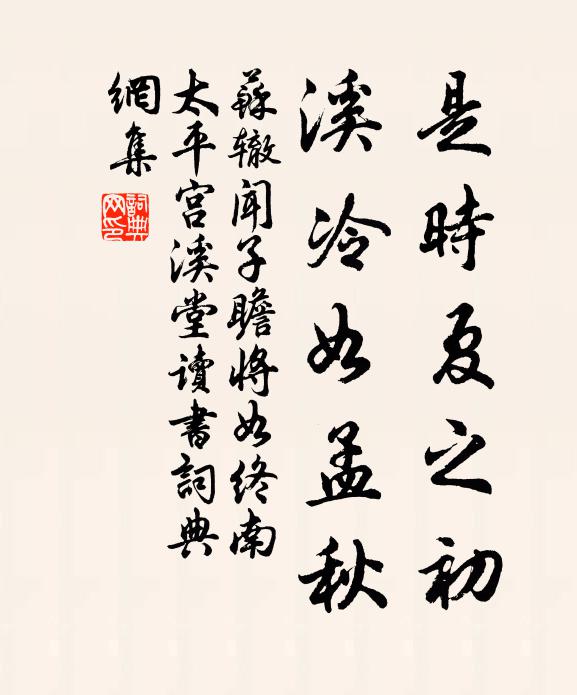 是時夏之初
溪冷如孟秋
蘇轍聞子瞻將如終南
太平宮溪堂讀書詞典
網集
詞典
网印